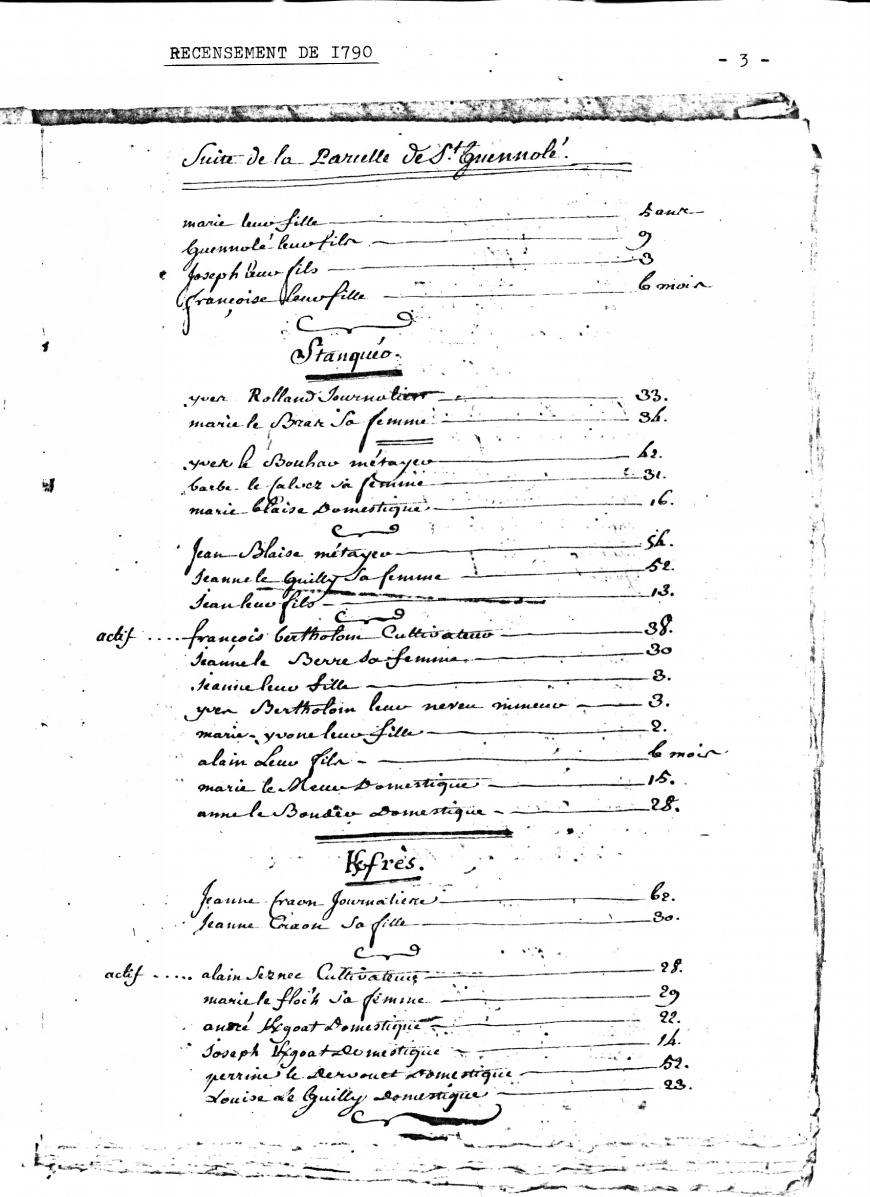 RECENSEMENT DE 1790
- 3 -
Suite de la Parcelle de St Guennolé.
marie leur fille 5 ans
Guennolé leur fils 9
Joseph leur fils 3
françoise leur fille 6 mois
Stanquéo.
yves Rolland Journalier 33.
marie le Bras Sa femme 34.
yves le Bouhar métayer 42.
barbe le Calvez sa femme 31.
marie blaise Domestique 16.
Jean Blaise métayer 54.
Jeanne le Guilly Sa femme 52.
Jean leur fils 13.
actif ..... françois bertholom Cultivateur 38.
Jeanne le Berre Sa femme. 30
Jeanne leur fille 3.
yves Bertholom leur neveu mineur 3.
marie-yvone leur fille 2.
alain Leur fils 6 mois
marie le Meur Domestique 15.
anne le Boudër Domestique 28.
Kfrès.
Jeanne Craon Journaliere 62.
Jeanne Craon Sa fille 30.
actif ..... alain Seznec Cultivateur 28.
marie le floch Sa femme 29
andré Kgoat Domestique 22.
Joseph Kgoat Domestique 14.
perrine le Dervouet Domestique 52.
Louise Le Guilly Domestique 23.